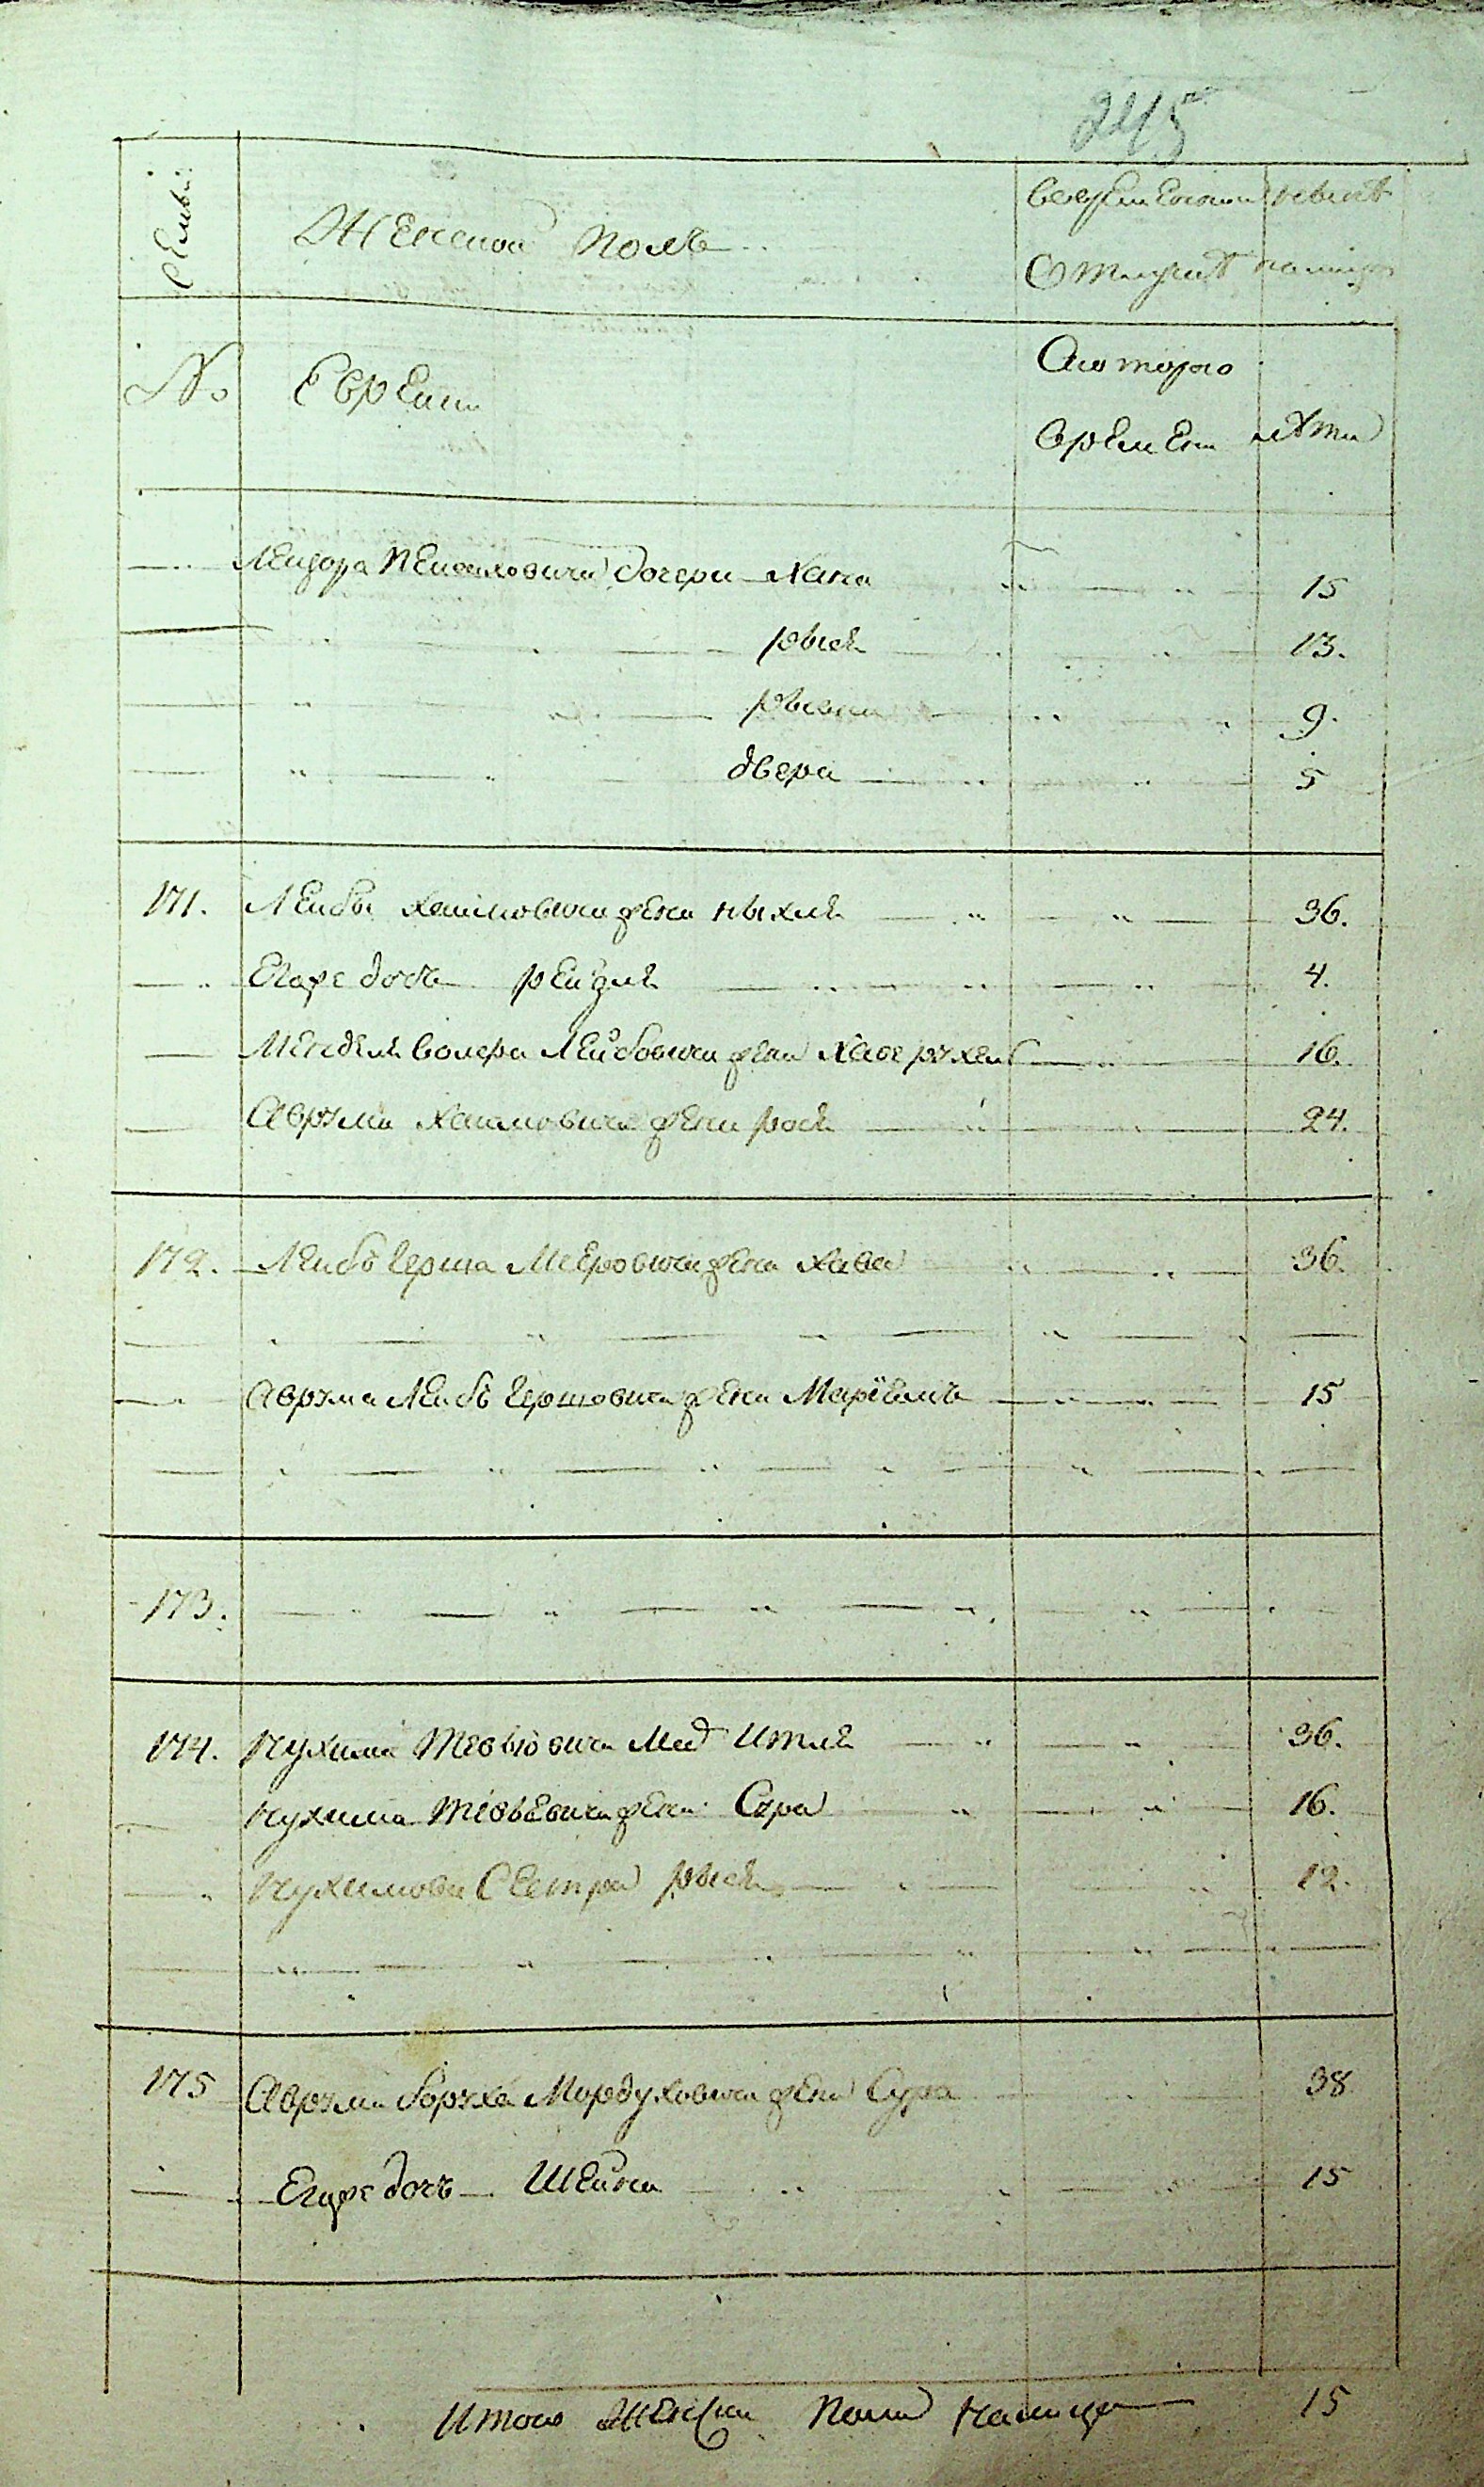 245
Семьи:
Женской полъ
Во временной
ныне
Отлучке
налицо
№
Евреи
С которого
времени
лета
Лейзора дочери Хана 15
рыся 13.
9.
двера 5
171. Лейбы Хаимовича жена Рыхля 36.
Его же дочь рейзля 4.
Менделя Волера Лейбовича жена Хаве рухля 16.
Аврума Хаимовича жена рося 24.
172. Лейбъ Герша Мееровича жена Хава 36.
Аврума Лейбъ Гершовича жена Маріемъ 15
173.
174. Нухима Тевьовича Мать Итля 36.
Нухима Тевьевича жена Сура 16.
Нухимова Сестра рыся 12.
175 Аврума боруха Мордуховича жена Сура 38
Его же дочь Шейна 15
Итого Женска Пола налицо 15